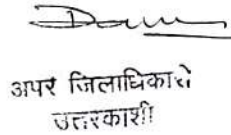 अपर जिलाधिकारी
उत्तरकाशी